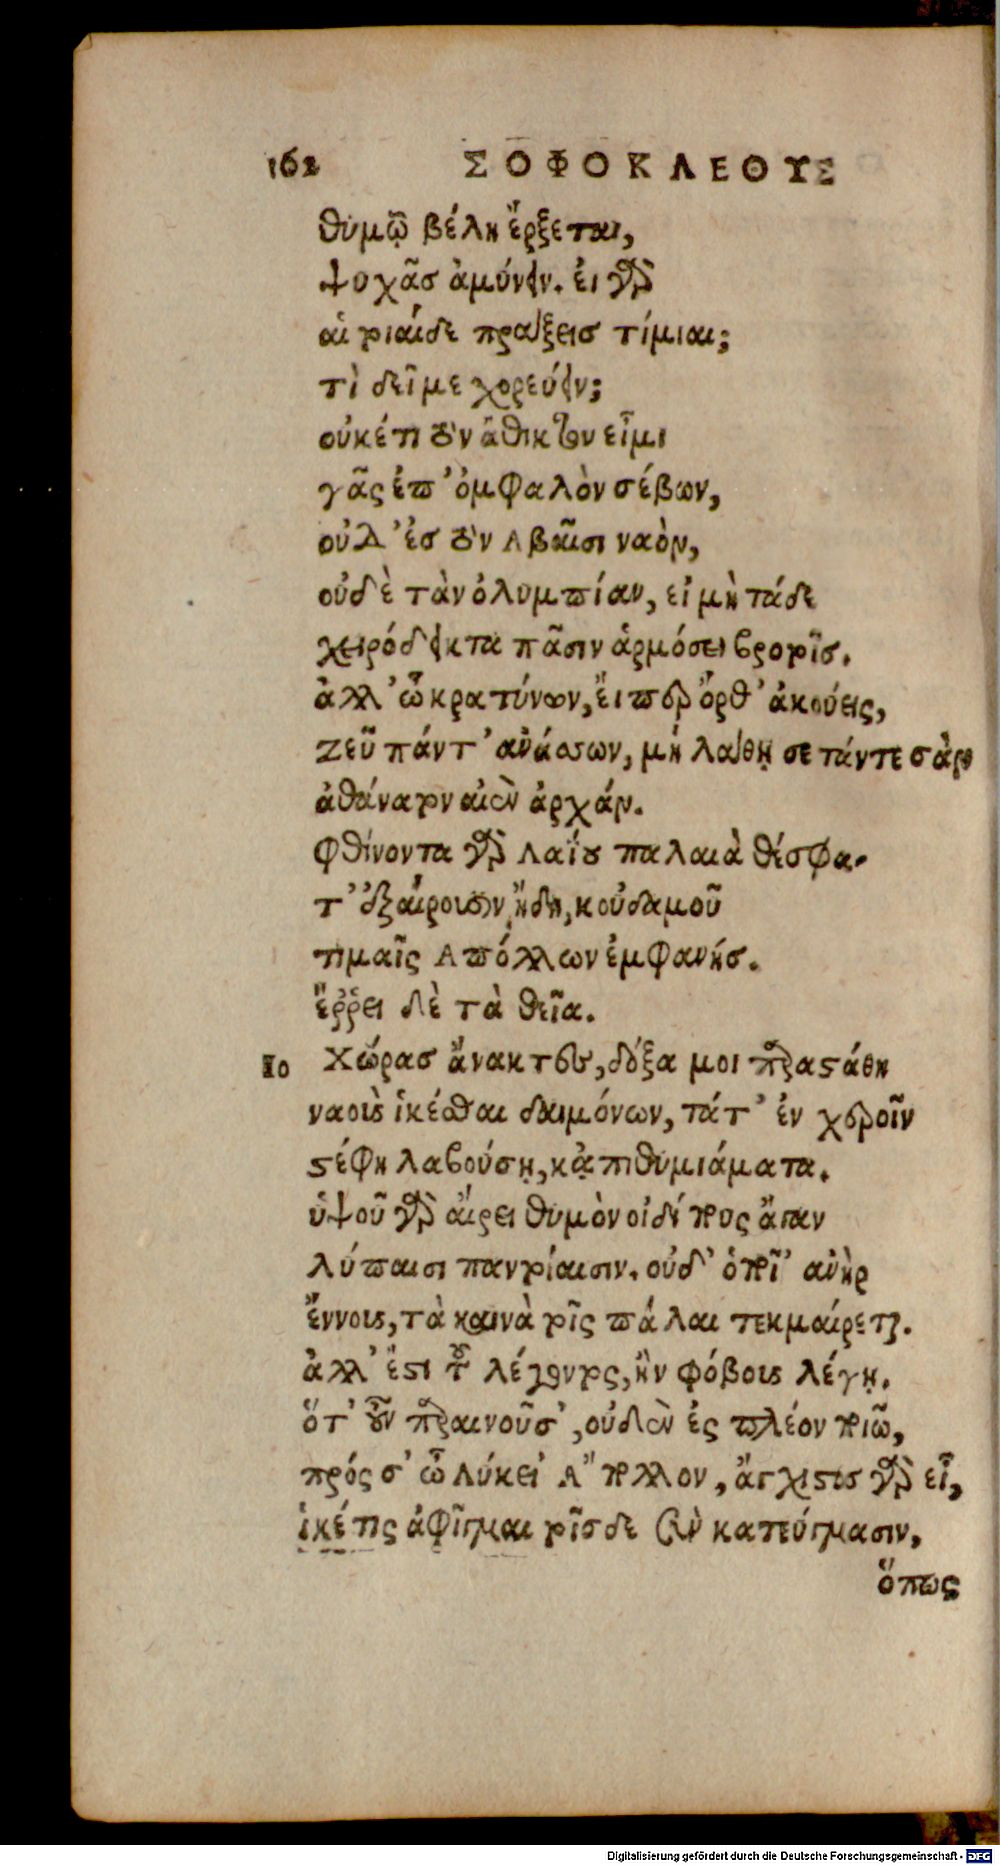 162 ΣΟΦΟΚΛΕΟΥΣ
θυμῷ βέλη ἔρξεται,
ψυχᾶσ ἀμύνειν. εἰ γὰρ
αἱ τοιαίδε πράξεισ τίμιαι;
τὶ δεῖ με χορεύειν;
οὐκέτι τὸν ἄθικτον εἶμι
γᾶς ἐπ’ ὀμφαλὸν σέβων,
οὐδ’ ἐσ τὸν Αβαῖσι ναὸν,
οὐδὲ τὰν ὀλυμπίαν, εἰ μὴ τάδε
χειρόδεικτα πᾶσιν ἁρμόσει βροτοῖσ.
ἀλλ’ ὦ κρατύνων, ἔιπερ ὄρθ’ ἀκούεις,
Ζεῦ πάντ’ ἀνάσσων, μὴ λάθῃ σε τάν τε σὰν
ἀθάνατον αἰὲν ἀρχάν.
φθίνοντα γὰρ Λαΐου παλαιὰ θέσφα-
τ’ ἐξαίρουσιν ἤδη, κοὐδαμοῦ
τιμαῖς Απόλλων ἐμφανήσ.
ἔῤῥει δὲ τὰ θεῖα.
Ιο Χώρασ ἄνακτες, δόξα μοι παρεστάθη
ναοὺς ἱκέσθαι δαιμόνων, τάτ’ ἐν χεροῖν
στέφη λαβούσῃ, κἀπιθυμιάματα.
ὑψοῦ γὰρ αἴρει θυμὸν οἰδίπους ἄγαν
λύπαισι παντοίαισιν. οὐδ’ ὁποῖ’ ἀνὴρ
ἔννους, τὰ καινὰ τοῖς πάλαι τεκμαίρεται.
ἀλλ’ ἔστι τοῦ λέγοντος, ἢν φόβους λέγῃ.
ὅτ’ οὖν παραινοῦσ’, οὐδὲν ἐς πλέον ποιῶ,
πρός σ’ ὦ Λύκει’ Α῎πολλον, ἄγχιστος γὰρ εἶ,
ἱκέτις ἀφῖγμαι τοῖσδε σὺν κατεύγμασιν,
ὅπως
Digitalisierung gefördert durch die Deutsche Forschungsgemeinschaft - DFG